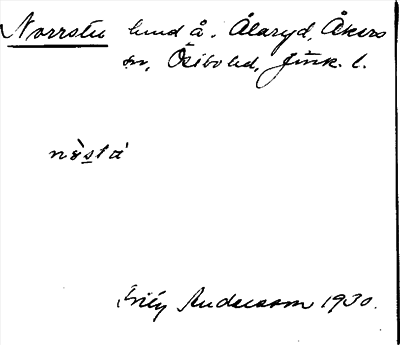 Norrstu lund å. Ålaryd, Åkers
sn, Östbo hd, Jönk. l.
nə̀stá
Frity Andersson 1930.